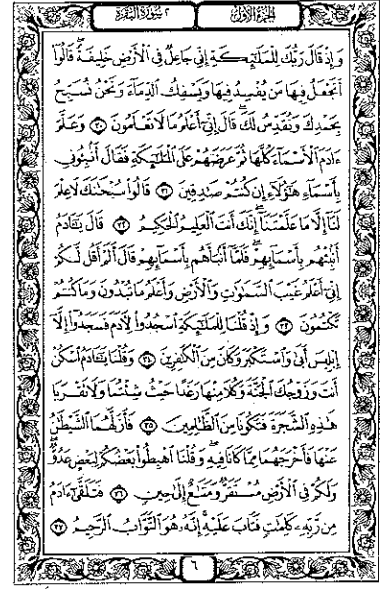 الجزء الأول
٢ سورة البقرة
وَإِذْ قَالَ رَبُّكَ لِلْمَلَٰٓئِكَةِ إِنِّى جَاعِلٌ فِى ٱلْأَرْضِ خَلِيفَةً قَالُوٓا۟
أَتَجْعَلُ فِيهَا مَن يُفْسِدُ فِيهَا وَيَسْفِكُ ٱلدِّمَآءَ وَنَحْنُ نُسَبِّحُ
بِحَمْدِكَ وَنُقَدِّسُ لَكَ قَالَ إِنِّىٓ أَعْلَمُ مَا لَا تَعْلَمُونَ ٣٠ وَعَلَّمَ
ءَادَمَ ٱلْأَسْمَآءَ كُلَّهَا ثُمَّ عَرَضَهُمْ عَلَى ٱلْمَلَٰٓئِكَةِ فَقَالَ أَنۢبِـُٔونِى
بِأَسْمَآءِ هَٰٓؤُلَآءِ إِن كُنتُمْ صَٰدِقِينَ ٣١ قَالُوا۟ سُبْحَٰنَكَ لَا عِلْمَ
لَنَآ إِلَّا مَا عَلَّمْتَنَآ إِنَّكَ أَنتَ ٱلْعَلِيمُ ٱلْحَكِيمُ ٣٢ قَالَ يَٰٓـَٔادَمُ
أَنۢبِئْهُم بِأَسْمَآئِهِمْ فَلَمَّآ أَنۢبَأَهُم بِأَسْمَآئِهِمْ قَالَ أَلَمْ أَقُل لَّكُمْ
إِنِّىٓ أَعْلَمُ غَيْبَ ٱلسَّمَٰوَٰتِ وَٱلْأَرْضِ وَأَعْلَمُ مَا تُبْدُونَ وَمَا كُنتُمْ
تَكْتُمُونَ ٣٣ وَإِذْ قُلْنَا لِلْمَلَٰٓئِكَةِ ٱسْجُدُوا۟ لِءَادَمَ فَسَجَدُوٓا۟ إِلَّآ
إِبْلِيسَ أَبَىٰ وَٱسْتَكْبَرَ وَكَانَ مِنَ ٱلْكَٰفِرِينَ ٣٤ وَقُلْنَا يَٰٓـَٔادَمُ ٱسْكُنْ
أَنتَ وَزَوْجُكَ ٱلْجَنَّةَ وَكُلَا مِنْهَا رَغَدًا حَيْثُ شِئْتُمَا وَلَا تَقْرَبَا
هَٰذِهِ ٱلشَّجَرَةَ فَتَكُونَا مِنَ ٱلظَّٰلِمِينَ ٣٥ فَأَزَلَّهُمَا ٱلشَّيْطَٰنُ
عَنْهَا فَأَخْرَجَهُمَا مِمَّا كَانَا فِيهِ وَقُلْنَا ٱهْبِطُوا۟ بَعْضُكُمْ لِبَعْضٍ عَدُوٌّ
وَلَكُمْ فِى ٱلْأَرْضِ مُسْتَقَرٌّ وَمَتَٰعٌ إِلَىٰ حِينٍ ٣٦ فَتَلَقَّىٰٓ ءَادَمُ
مِن رَّبِّهِۦ كَلِمَٰتٍ فَتَابَ عَلَيْهِ إِنَّهُۥ هُوَ ٱلتَّوَّابُ ٱلرَّحِيمُ ٣٧
٦